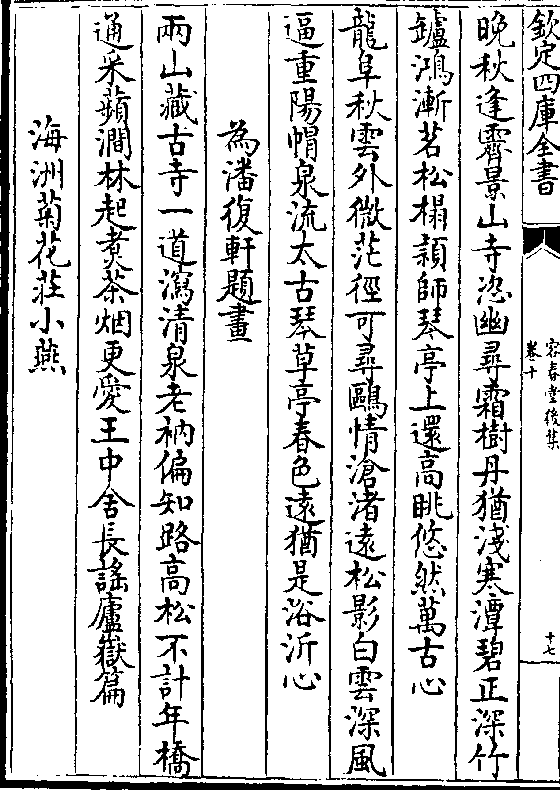 欽定四庫全書
容春堂後集
卷十
十七
晚秋逢霽景山寺恣幽尋霜樹丹猶淺寒潭碧正深竹
鑪鴻漸茗松榻潁師琴亭上還高眺悠然萬古心
龍阜秋雲外微茫徑可尋鷗情滄渚遠松影白雲深風
逼重陽帽泉流太古琴草亭春色遠猶是浴沂心
為潘復軒題畫
兩山藏古寺一道瀉清泉老衲偏知路高松不計年橋
通采蘋澗林起煑茶烟更愛王中舍長謠廬嶽篇
海洲菊花莊小燕